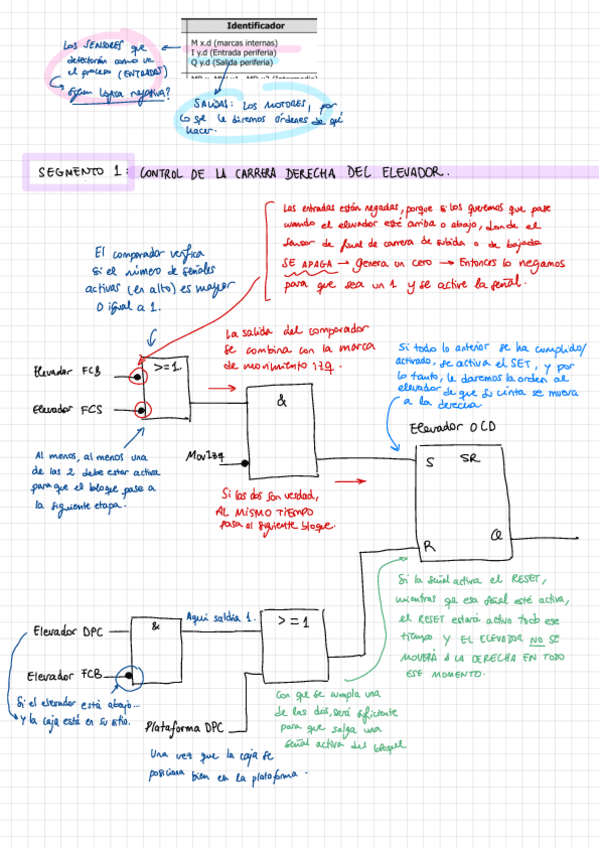 Identificador
M x.d (marcas internas)
I y.d (Entrada periferia)
Q y.d (Salida periferia)
LOS SENSORES que
detectarán como va
el proceso (ENTRADAS)
siguen lógica negativa?
SALIDAS: LOS MOTORES, por
lo que le diremos órdenes de qué
hacer.
SEGMENTO 1: CONTROL DE LA CARRERA DERECHA DEL ELEVADOR.
Las entradas están negadas, porque si los queremos que pase
cuando el elevador esté arriba o abajo, donde el
sensor de final de carrera de subida o de bajada
SE APAGA → Genera un cero → Entonces lo negamos
para que sea un 1 y se active la señal.
El comparador verifica
si el número de señales
activas (en alto) es mayor
o igual a 1.
La salida del comparador
se combina con la marca
de movimiento izq.
Si todo lo anterior se ha cumplido/
activado, se activa el SET, y por
lo tanto, le daremos la orden al
elevador de que su cinta se mueva
a la derecha.
Elevador FCB
>=1
Elevador FCS
&
Elevador OCD
Al menos, al menos una
de las 2 debe estar activa
para que el bloque pase a
la siguiente etapa.
MovIzq
S SR
Si las dos son verdad,
AL MISMO TIEMPO
pasa al siguiente bloque.
R
Q
Si la señal activa el RESET,
mientras que esa señal esté activa,
el RESET estará activo todo ese
tiempo y EL ELEVADOR NO SE
MOVERÁ A LA DERECHA EN TODO
ESE MOMENTO.
Elevador DPC
&
Aquí saldía 1.
>=1
Elevador FCB
Si el elevador está abajo...
y la caja está en su sitio.
Plataforma DPC
Con que se cumpla una
de las dos, será suficiente
para que salga una
señal activa del bloque
Una vez que la caja se
posiciona bien en la plataforma.